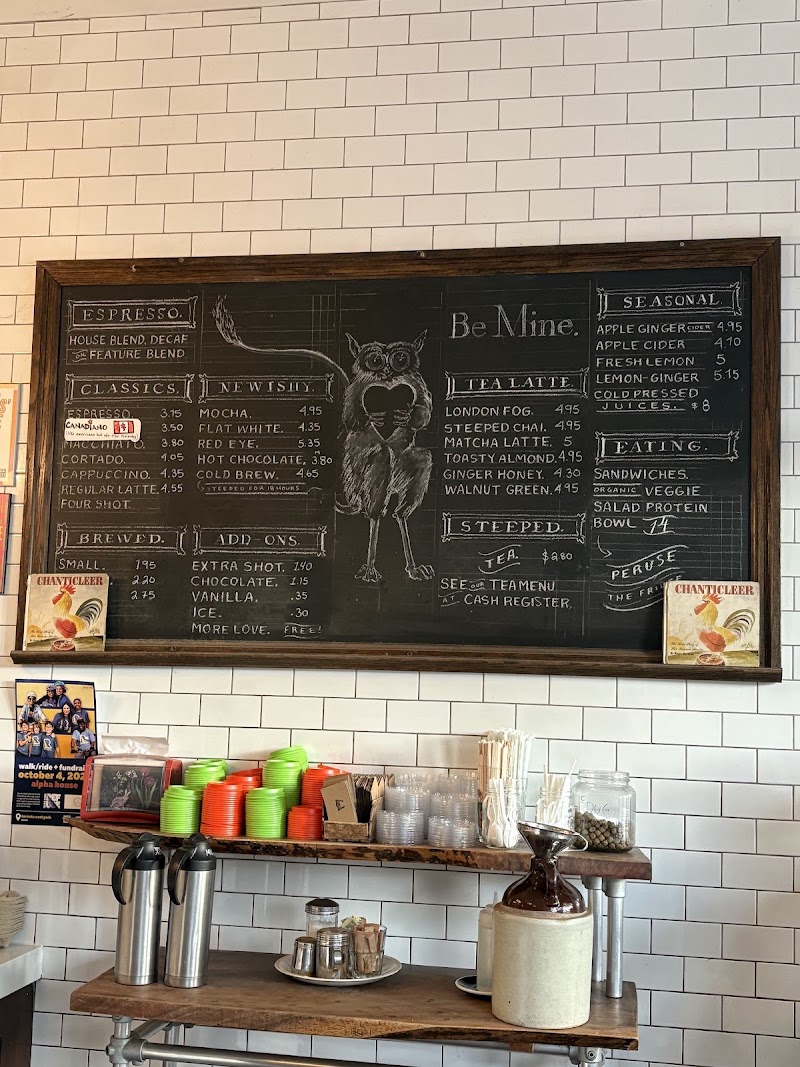 ESPRESSO.
HOUSE BLEND, DECAF
OR FEATURE BLEND.
CLASSICS.
ESPRESSO. 3.15
CANADIANO 3.50
MACCHIATO. 3.80
CORTADO. 4.05
CAPPUCCINO. 4.35
REGULAR LATTE. 4.55
FOUR SHOT.
BREWED.
SMALL. 1.95
2.20
2.75
NEWISHY.
MOCHA. 4.95
FLAT WHITE. 4.35
RED EYE. 5.35
HOT CHOCOLATE. 3.80
COLD BREW. 4.65
STEEPED FOR 18 HOURS
ADD-ONS.
EXTRA SHOT. 1.40
CHOCOLATE. 1.15
VANILLA. .35
ICE. .30
MORE LOVE. FREE!
Be Mine.
TEA LATTE.
LONDON FOG. 4.95
STEEPED CHAI. 4.95
MATCHA LATTE. 5
TOASTY ALMOND. 4.95
GINGER HONEY. 4.30
WALNUT GREEN. 4.95
STEEPED.
TEA. $2.80
SEE OUR TEA MENU
AT CASH REGISTER.
SEASONAL.
APPLE GINGER CIDER 4.95
APPLE CIDER 4.70
FRESH LEMON 5
LEMON-GINGER 5.15
COLD PRESSED
JUICES. $8
EATING.
SANDWICHES.
ORGANIC VEGGIE
SALAD PROTEIN
BOWL 14
PERUSE
THE
CHANTICLEER
CHANTICLEER
walk/ride + fundrai
october 4, 202
alpha house